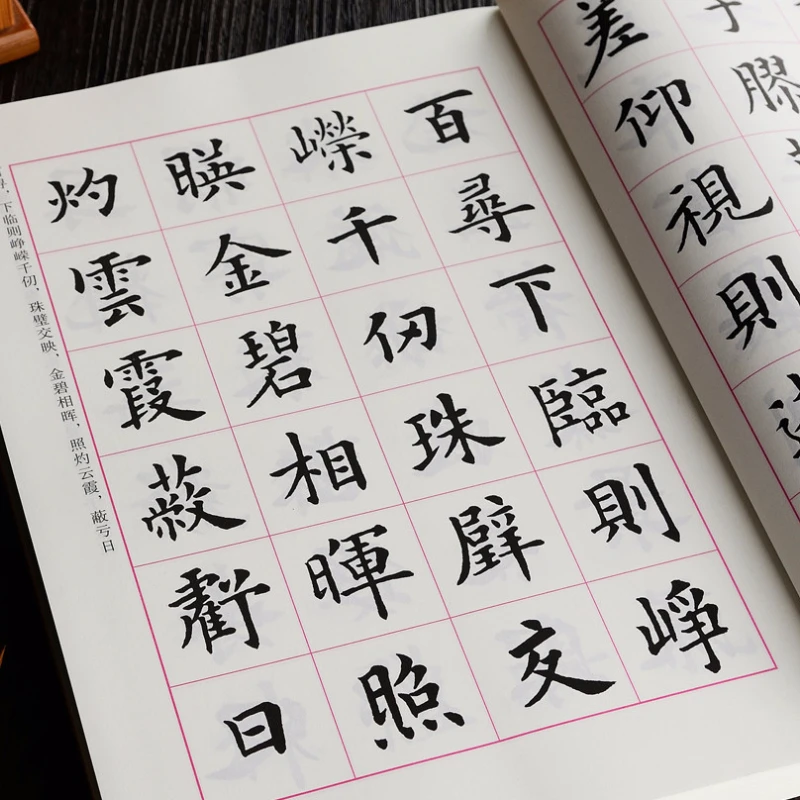 膠
差仰視則
百尋下臨則崢
嶸千仞珠璧交
暎金碧相暉照
灼雲霞蔽虧日
寻，下临则峥嵘千仞，珠璧交映，金碧相晖，照灼云霞，蔽亏日